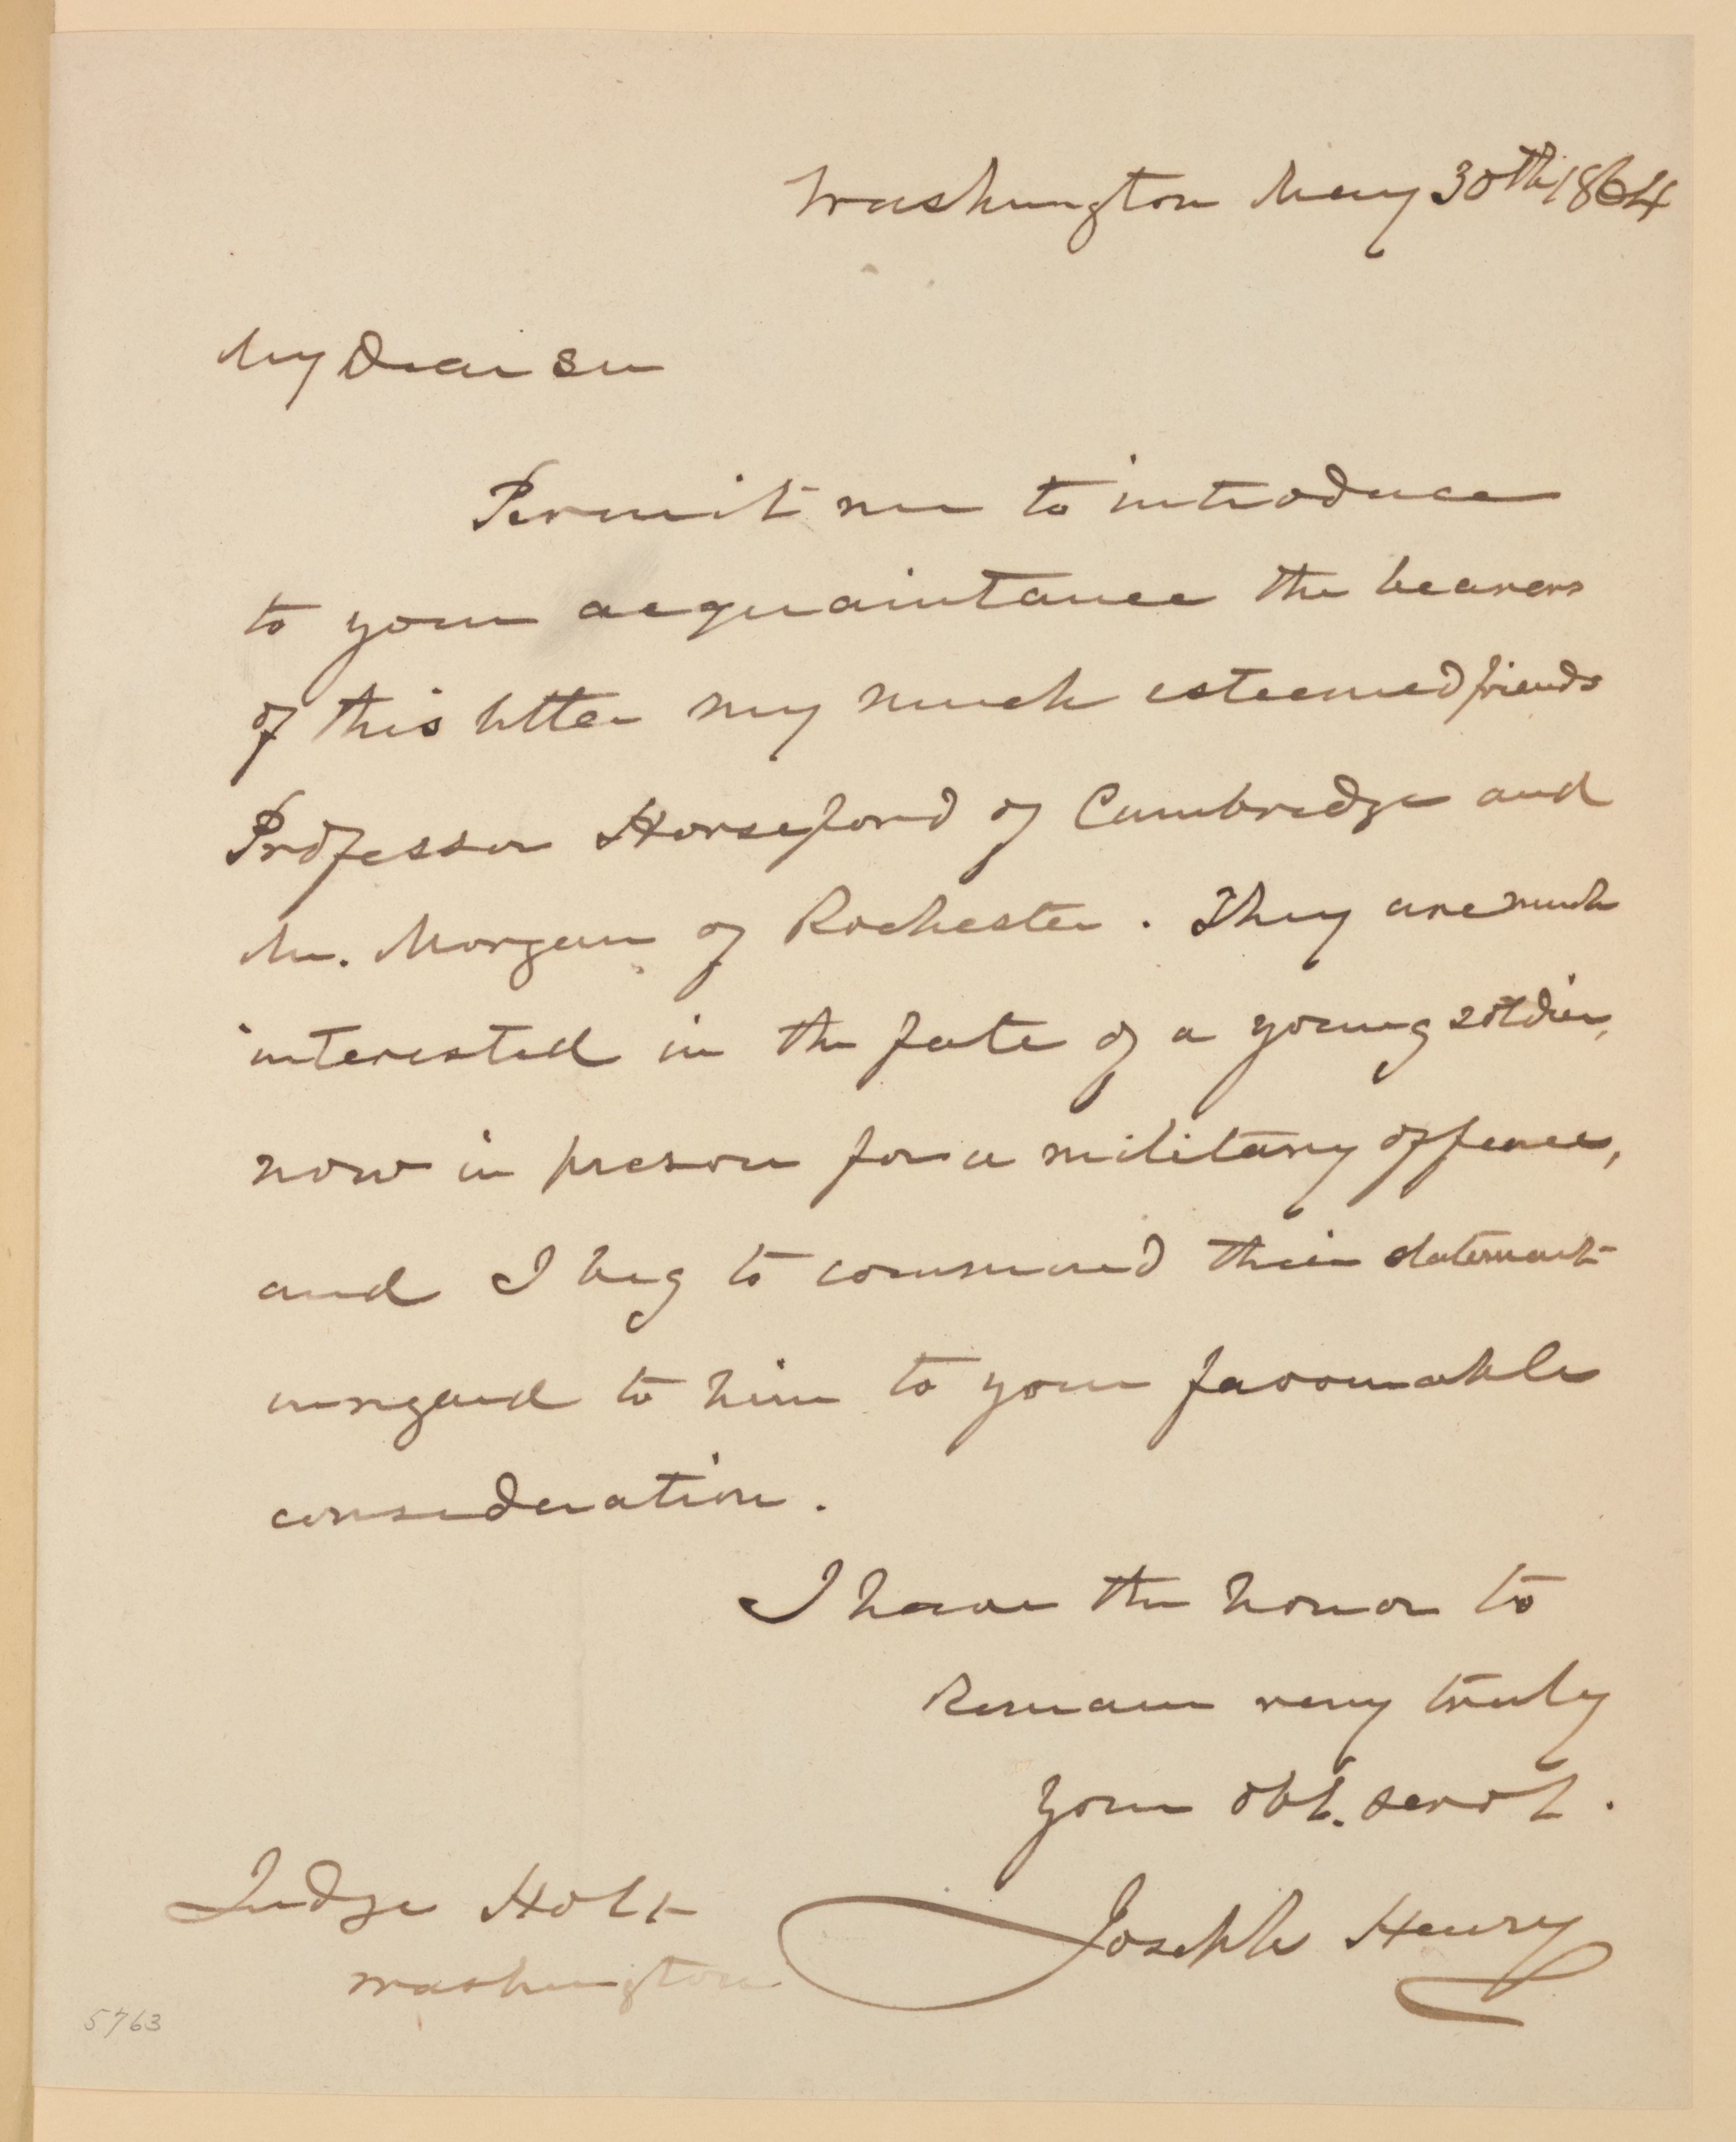 Washington May 30th 1864
My Dear Sir
Permit me to introduce
to your acquaintance the bearers
of this letter my much esteemed friends
Professor Horseford of Cambridge and
Mr. Morgan of Rochester. They are much
interested in the fate of a young soldier,
now in preson for a military offence,
and I beg to commend their statement
in regard to him to your favourable
consideration.
I have the honor to
Remain very truly
your obt. servt.
Joseph Henry
Judge Holt
Washington
5763